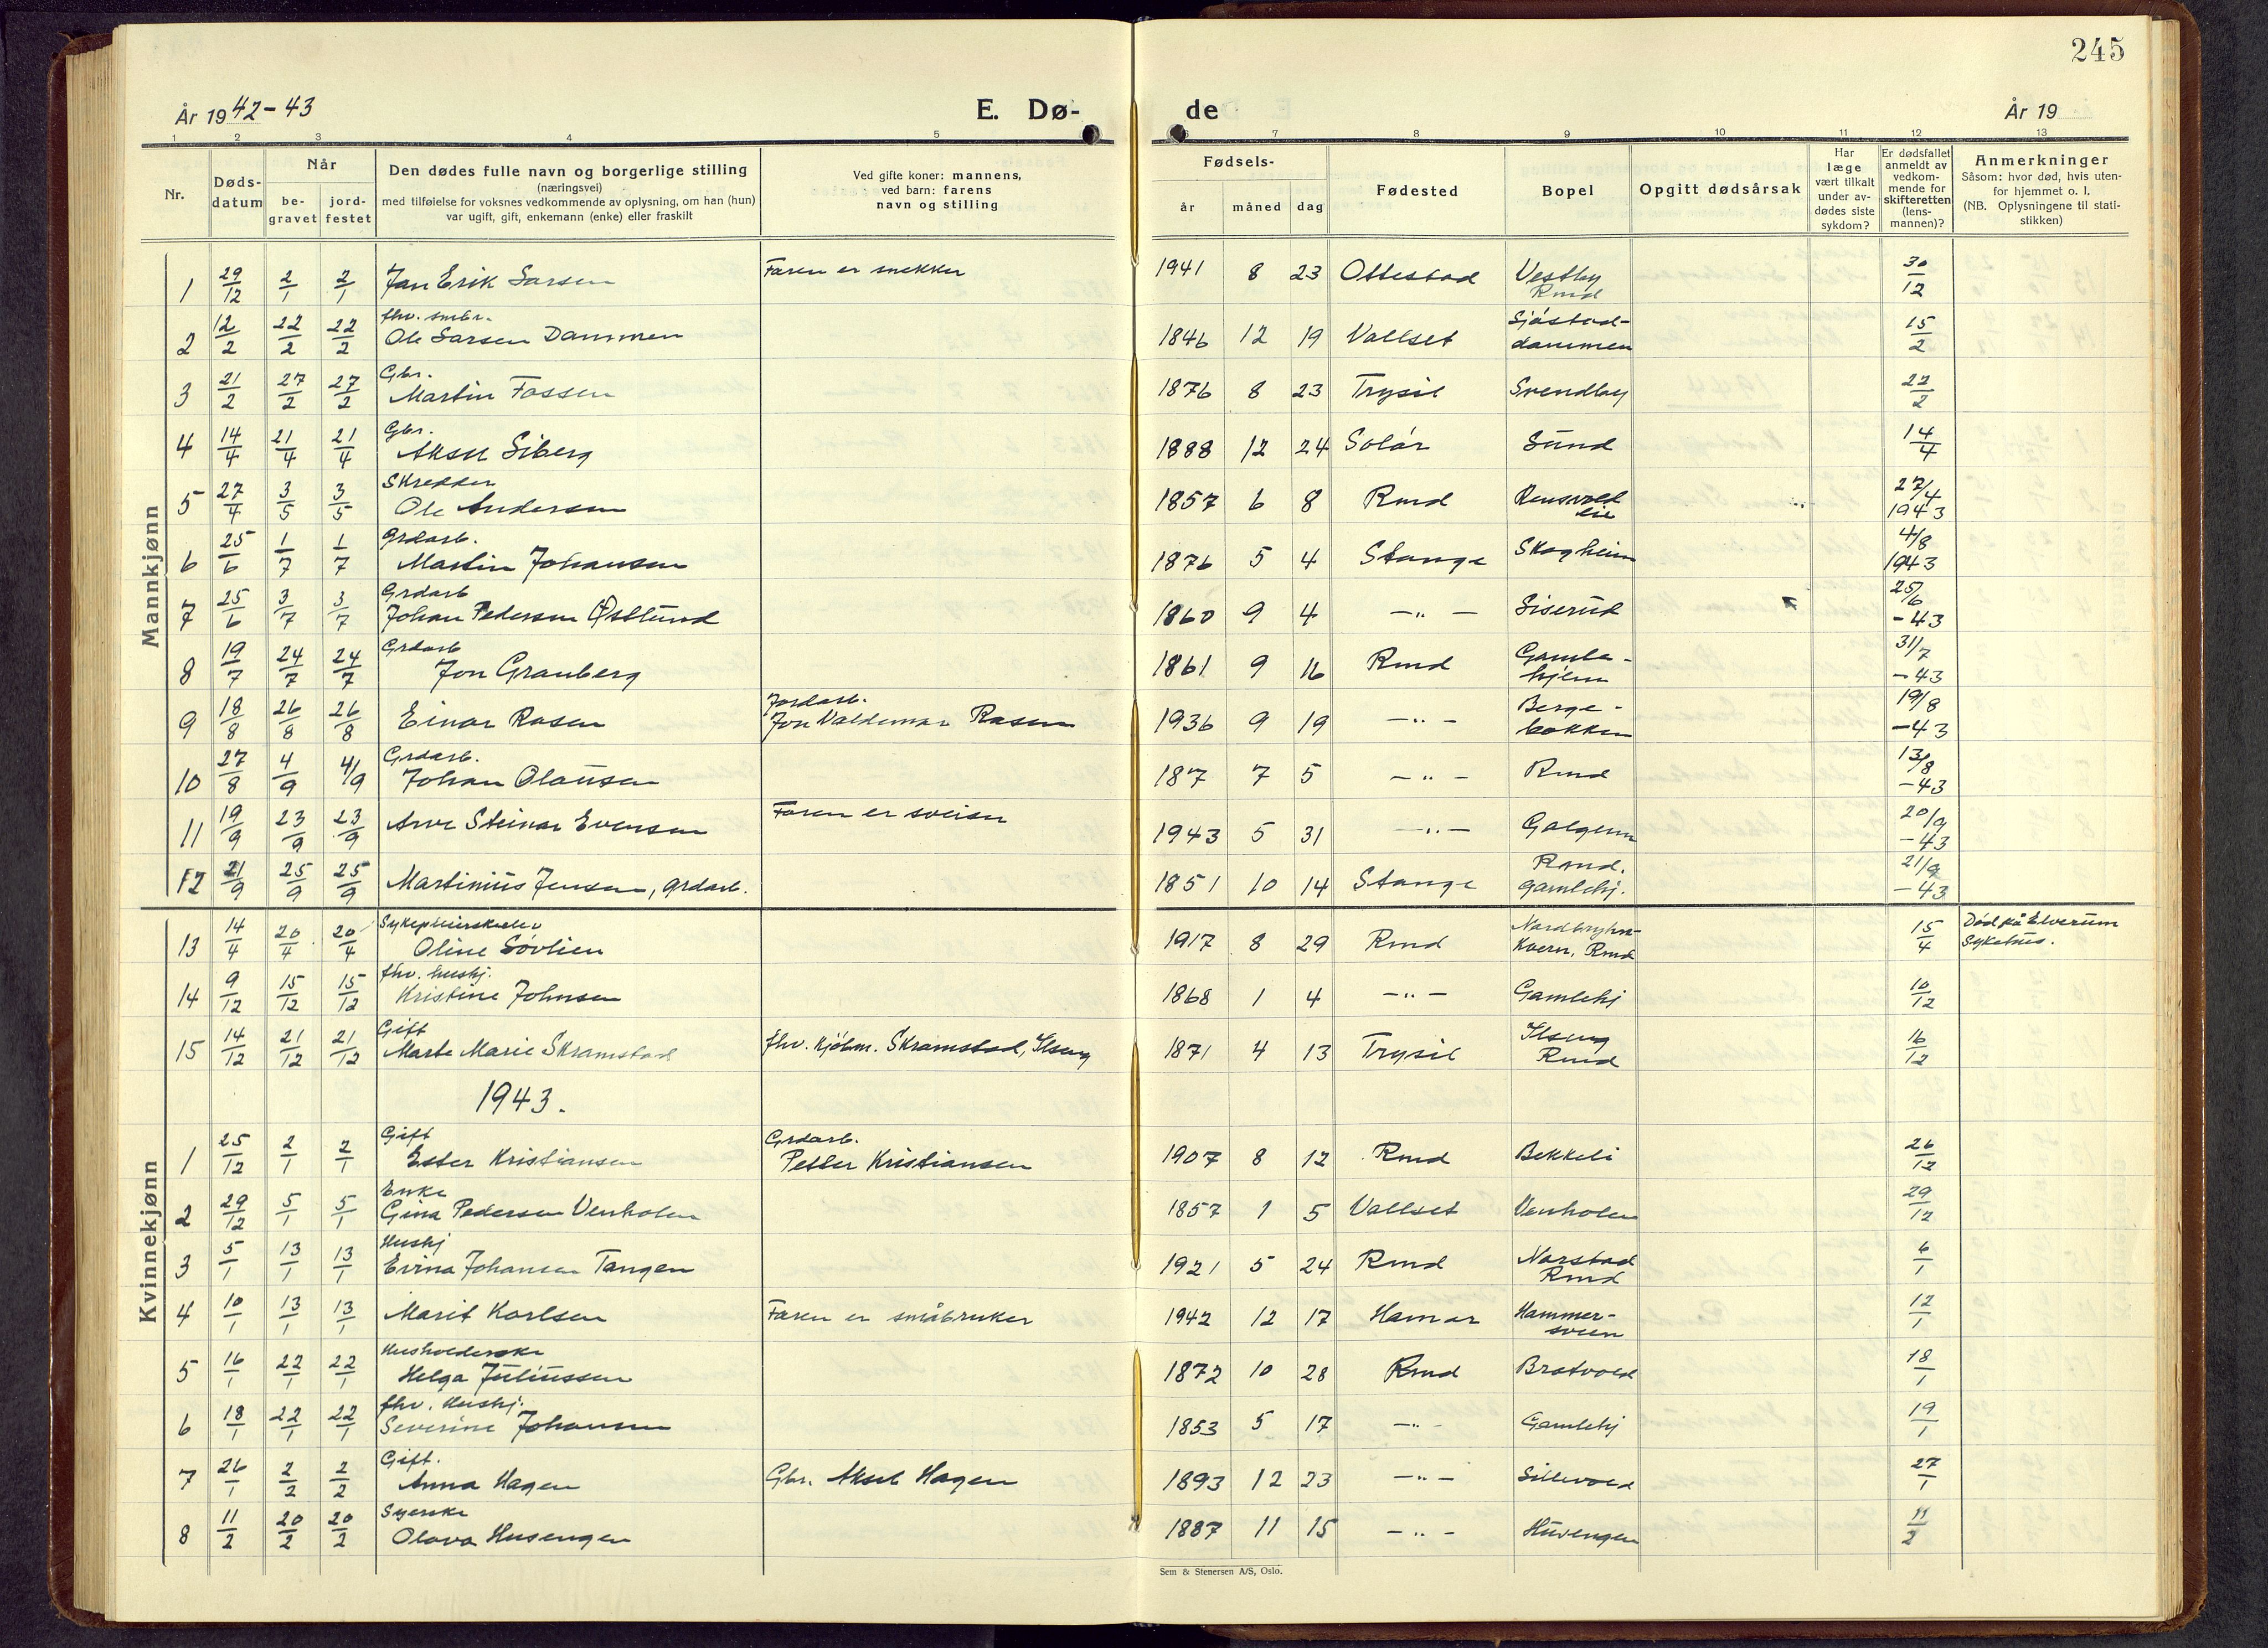 245
År 1942-43
E. Dø-
de
År 19
1 2 3 4 5 6 7 8 9 10 11 12 13
Nr.
Døds-
datum
Når
be-
gravet
jord-
festet
Den dødes fulle navn og borgerlige stilling
(næringsvei)
med tilføielse for voksnes vedkommende av oplysning, om han (hun)
var ugift, gift, enkemann (enke) eller fraskilt
Ved gifte koner: mannens,
ved barn: farens
navn og stilling
Fødsels-
år måned dag
Fødested
Bopel
Opgitt dødsårsak
Har
læge
vært tilkalt
under av-
dødes siste
sykdom?
Er dødsfallet
anmeldt av
vedkom-
mende for
skifteretten
(lens-
mannen)?
Anmerkninger
Såsom: hvor død, hvis uten-
for hjemmet o. l.
(NB. Oplysningene til stati-
stikken)
Mannkjønn
1 29/12 2/1 2/1 Jan Erik Larsen Faren er snekker 1941 8 23 Ottestad Vestby Rmd 30/12
fhv. smbr.
2 12/2 22/2 22/2 Ole Larsen Dammen 1846 12 19 Vallset Sjøstad-
dammen 15/2
Gbr.
3 21/2 27/2 27/2 Martin Fossen 1876 8 23 Trysil Svendby 22/2
Gbr.
4 14/4 21/4 21/4 Aksel Siberg 1888 12 24 Solør Sund 14/4
Skredder
5 27/4 3/5 3/5 Ole Andersen 1857 6 8 Rmd 27/4
1943
Grdarb.
6 25/6 1/7 1/7 Martin Johansen 1876 5 4 Stange Skogheim 4/8
1943
Grdarb
7 25/6 3/7 3/7 Johan Pedersen Østlund 1860 9 4 —"— Siserud 25/6
-43
Grdarb
8 19/7 24/7 24/7 Jon Granberg 1861 9 16 Rmd Gamle-
hjem 31/7
-43
Jordarb.
9 18/8 26/8 26/8 Einar Rasen Jon Valdemar Rasen 1936 9 19 —"— Berge-
bakken 19/8
-43
Grdarb.
10 27/8 4/9 4/9 Johan Olausen 187 7 5 —"— Rmd 13/8
-43
11 19/9 23/9 23/9 Arve Steinar Evensen Faren er sveiser 1943 5 31 —"— Galgum 20/9
-43
12 21/9 25/9 25/9 Martinius Jensen, grdarb. 1851 10 14 Stange Romd.
gamlehj. 21/9
-43
Kvinnekjønn
Sykepleierskeelev
13 14/4 20/4 20/4 Oline Løvlien 1917 8 29 Rmd Nordbryhn-
Kvern, Rmd 15/4 Død på Elverum
Sykehus.
fhv. hushj.
14 9/12 15/12 15/12 Kristine Johnsen 1868 1 4 —"— Gamlehj 10/12
Gift
15 14/12 21/12 21/12 Marte Marie Skramstad fhv. kjøbm. Skramstad, Ilseng 1871 4 13 Trysil Ilseng
Rmd 16/12
1943.
Gift Grdarb.
1 25/12 2/1 2/1 Ester Kristiansen Petter Kristiansen 1907 8 12 Rmd Bekkeli 26/12
Enke
2 29/12 5/1 5/1 Gina Pedersen Venholen 1857 1 5 Vallset Venholen 29/12
Hushj
3 5/1 13/1 13/1 Evina Johansen Tangen 1921 5 24 Rmd Narstad
Rmd 6/1
4 10/1 13/1 13/1 Marit Karlsen Faren er småbruker 1942 12 17 Hamar Hammer-
sveen 12/1
Husholderske
5 16/1 22/1 22/1 Helga Juliussen 1872 10 28 Rmd Bratvold 18/1
fhv. Hushj.
6 18/1 22/1 22/1 Severine Johansen 1853 5 17 —"— Gamlehj 19/1
Gift.
7 26/1 2/2 2/2 Anna Hagen Gbr. Aksel Hagen 1893 12 23 —"— Sillevold 27/1
Syerske
8 11/2 20/2 20/2 Olava Husengen 1887 11 15 —"— Husengen 11/2
Sem & Stenersen A/S, Oslo.